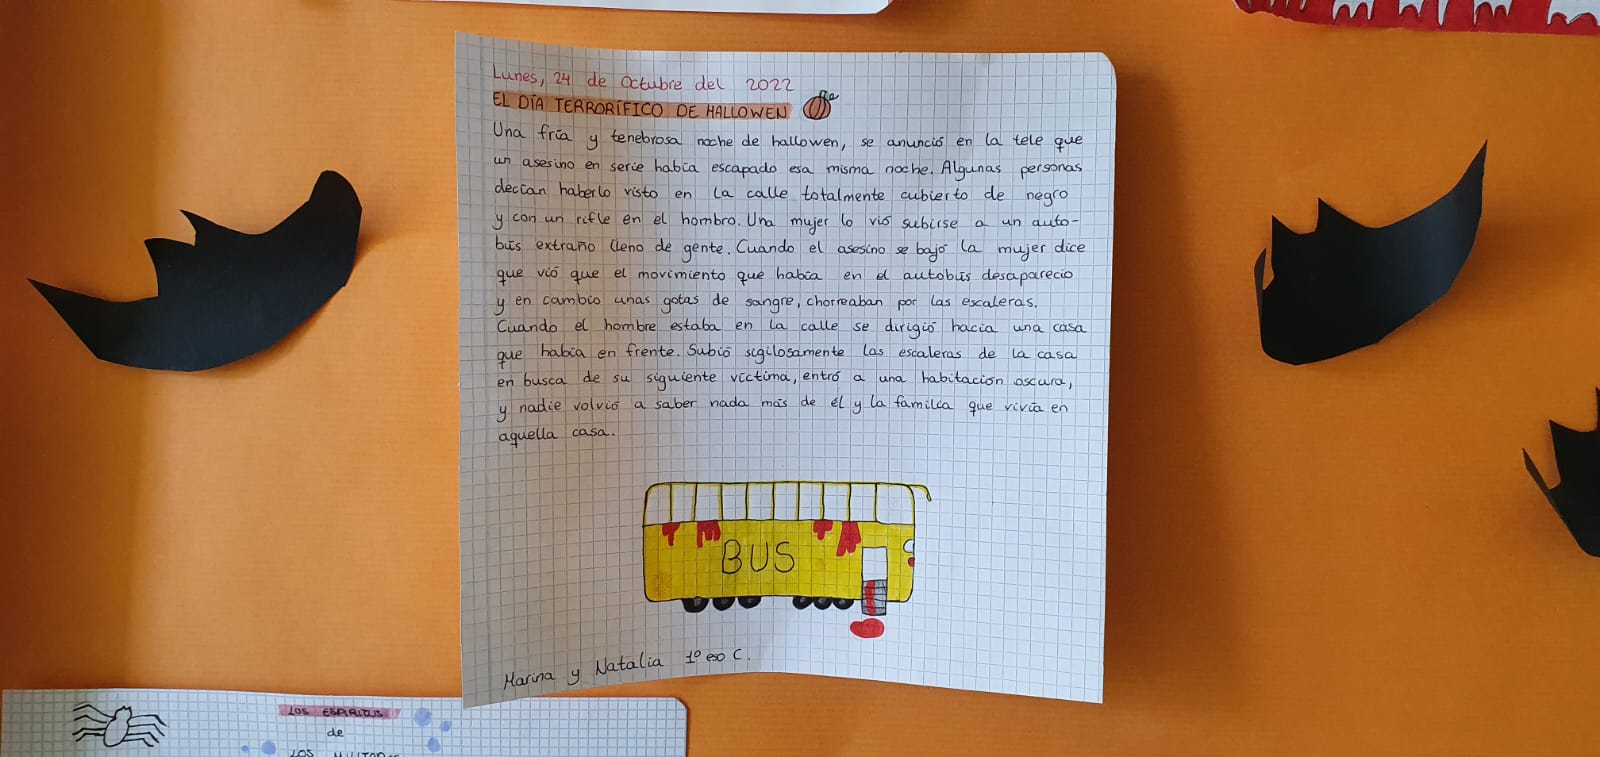 Lunes, 24 de Octubre del 2022
EL DÍA TERRORÍFICO DE HALLOWEN
Una fría y tenebrosa noche de hallowen, se anunció en la tele que
un asesino en serie había escapado esa misma noche. Algunas personas
decían haberlo visto en la calle totalmente cubierto de negro
y con un rifle en el hombro. Una mujer lo vió subirse a un auto-
bús extraño lleno de gente. Cuando el asesino se bajó la mujer dice
que vió que el movimiento que había en el autobús desaparecio
y en cambio unas gotas de sangre, chorreaban por las escaleras.
Cuando el hombre estaba en la calle se dirigió hacia una casa
que había en frente. Subió sigilosamente las escaleras de la casa
en busca de su siguiente víctima, entró a una habitación oscura,
y nadie volvió a saber nada más de él y la familia que vivía en
aquella casa.
BUS
Marina y Natalia 1º eso C.
LOS ESPIRITUS
de
LOS